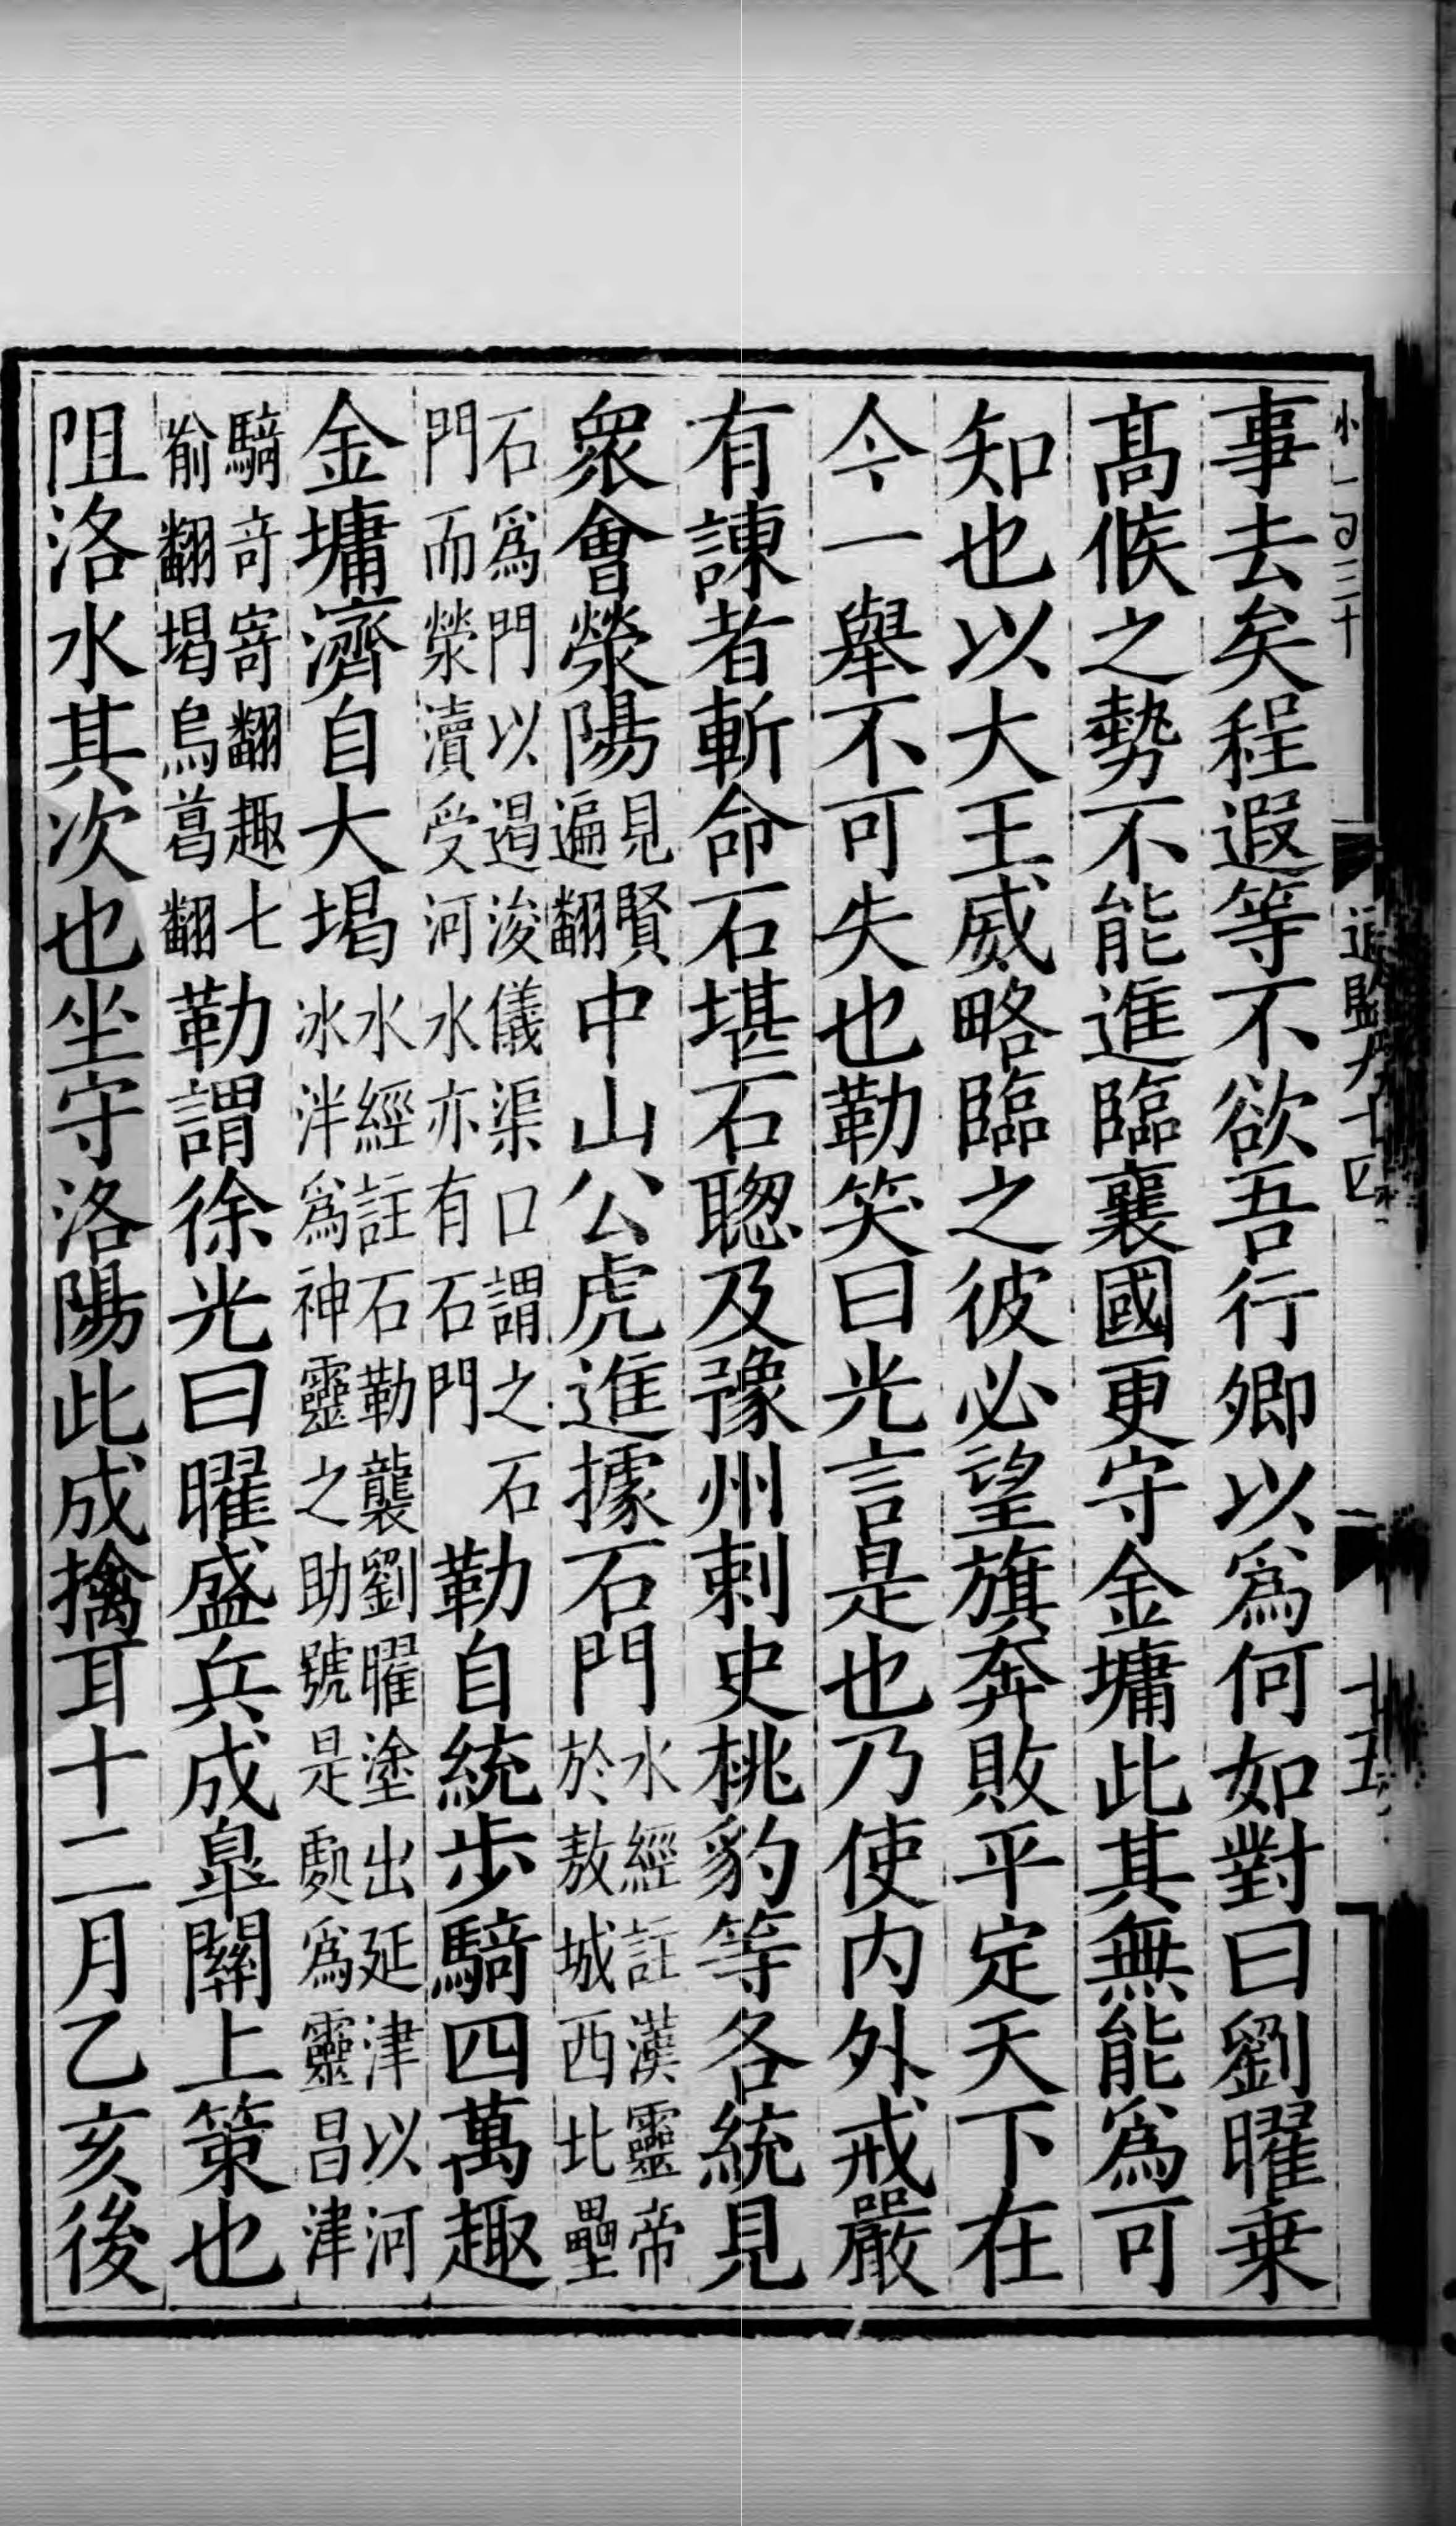 小一百三十
通鑑九十四
十五
事去矣程遐等不欲吾行卿以爲何如對曰劉曜乗
髙候之勢不能進臨襄國更守金墉此其無能爲可
知也以大王威略臨之彼必望旗奔敗平定天下在
今一舉不可失也勒笑曰光言是也乃使内外戒嚴
有諫者斬命石堪石聦及豫州刺史桃豹等各統見
衆會滎陽見賢遍翻中山公虎進據石門水經註漢靈帝於敖城西北壘
石爲門以遏浚儀渠口謂之石門而滎瀆受河水亦有石門勒自統步騎四萬趣
金墉濟自大堨水經註石勒襲劉曜塗出延津以河冰泮爲神靈之助號是處爲靈昌津
騎奇寄翻趣七喻翻堨烏葛翻勒謂徐光曰曜盛兵成皐關上策也
阻洛水其次也坐守洛陽此成擒耳十二月乙亥後